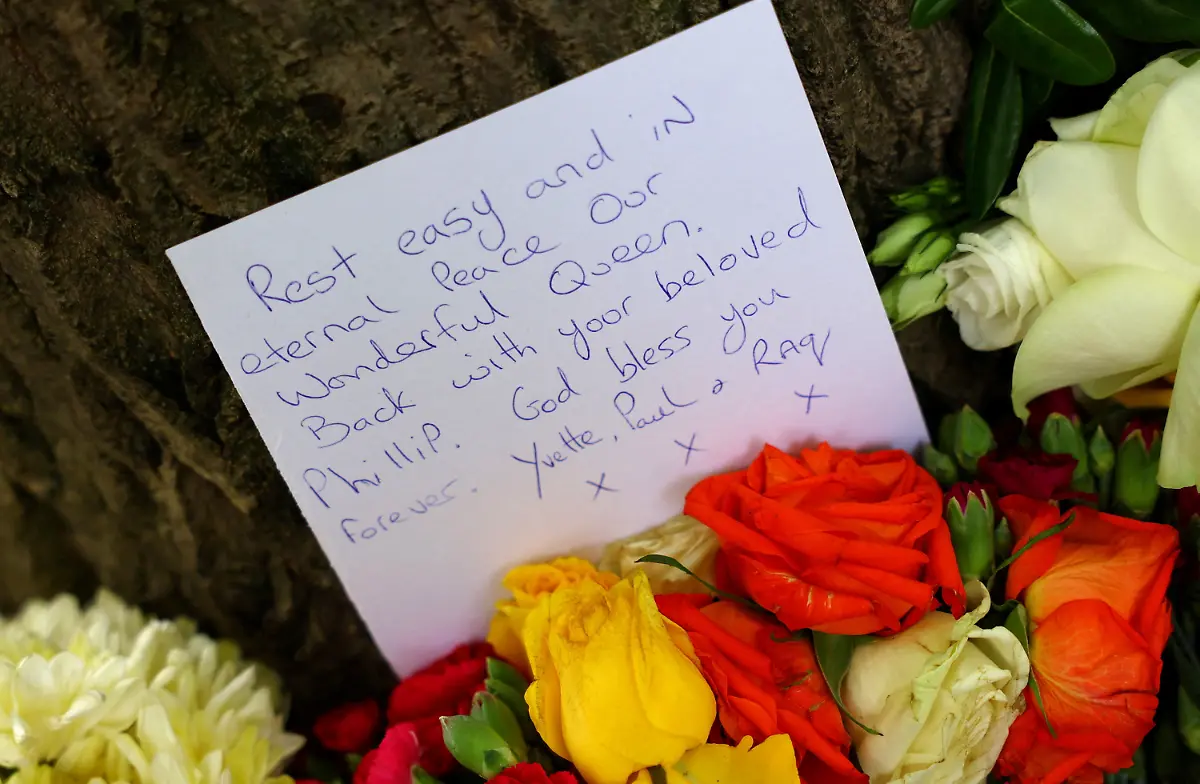 Rest easy and iN
eternal Peace Our
Wonderful Queen.
Back with your beloved
PhilliP. God bless you
forever. Yvette, Paul &
x x x